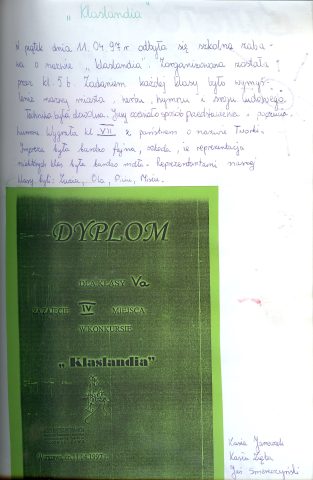 „Klaslandia”
W piątek dnia 11.04.97r. odbyła się szkolna zaba-
wa o nazwie „Klaslandia”. Zorganizowana została
przez kl. 5 b. Zadaniem każdej klasy było wymyś-
lenie nazwy miasta, herbu, hymnu i stroju ludowego.
Technika była dowolna. Jury oceniało sposób przedstawienia i poczucie
humoru. Wygrała kl. VII z państwem o nazwie Tworki.
Impreza była bardzo fajna, szkoda, że reprezentacja
niektórych klas była bardzo mała. Reprezentantami naszej
klasy byli: Zuzia, Ola,
DYPLOM
DLA KLASY Va
ZA ZAJĘCIE IV MIEJSCA
W KONKURSIE
„Klaslandia”
11.04.1997 r.
Kasia
Kasia Zięba
Jaś